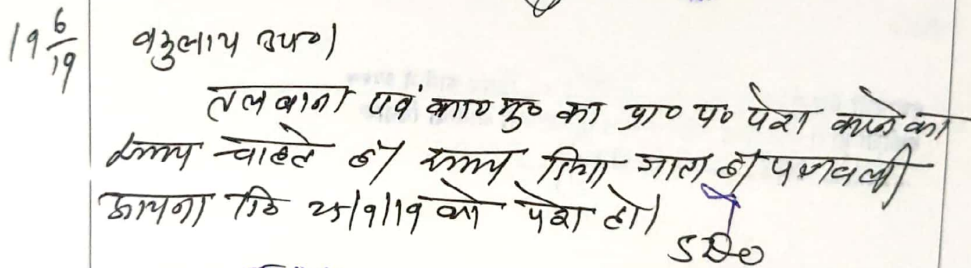 19 6/19
वकुलाय उप०।
तलवाना एवं का० मु० का प्रा० प० पेश करने का
समय चाहते है। समय दिया जाता है। पत्रावली
आयन्दा दि 25/9/19 को पेश हो।
SDO